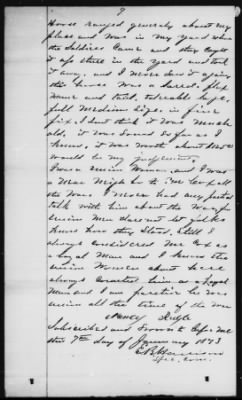 horse ranged generally about my
place and was in my yard when
the Soldiers Came and they Caught
it up there in the yard and took
it away, and I never saw it again
this horse was a Sorrel,
and tolerable large,
full Medium Size. in fine
fix I dont think it was Much
old, it was Sound So far as I
Know, it was worth about
would be my judgment.
I was a Union Woman, and I was
a Near Neighbor to Mr Cox all
the War I Never had any
talk with him about the War for
Union Men dare not let folks
Know how they Stood, Still I
always Considered Mr Cox as
a loyal Man and I Know the
Union Women about here
always Counted him as a loyal
Man and I am positive he was
Union all the time of the War
Nancy
Subscribed and Sworn to before me
this 7th day of January 1873
Harrison
Spec. Com.